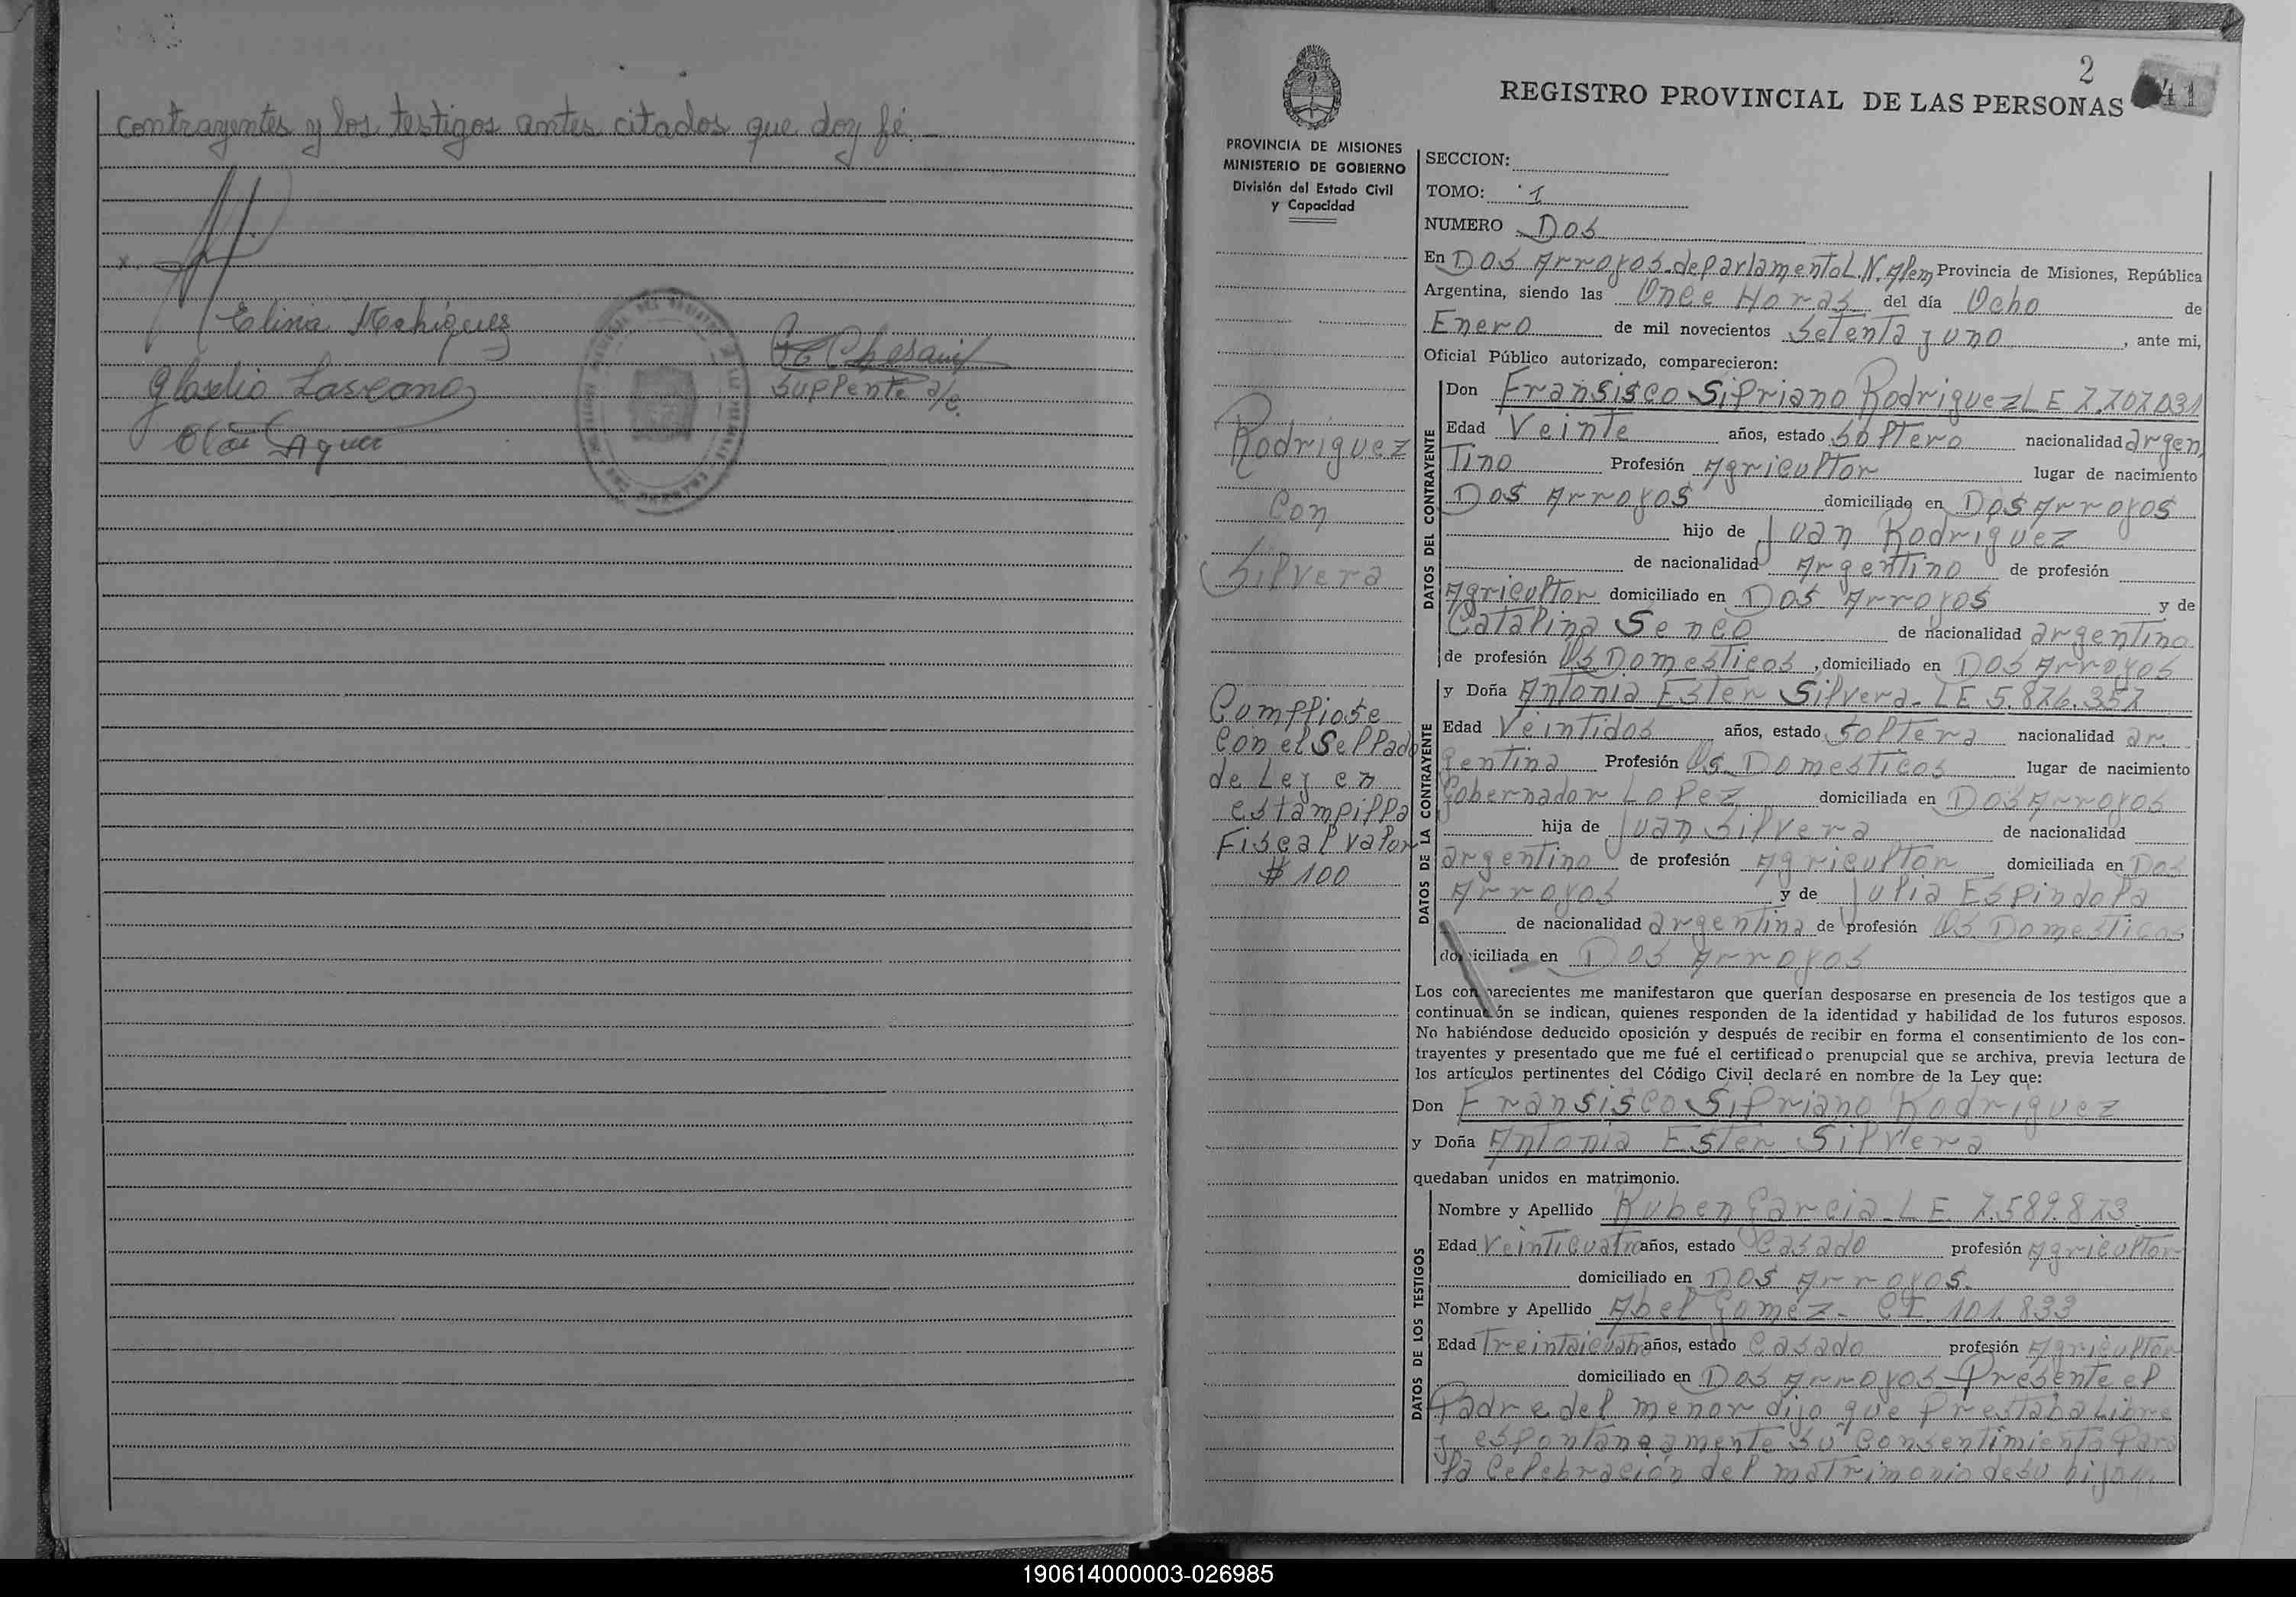 contrayentes y los testigos antes citados que doy fé.
Elina
suplente a/c.
2
41
REGISTRO PROVINCIAL DE LAS PERSONAS
PROVINCIA DE MISIONES
MINISTERIO DE GOBIERNO
División del Estado Civil
y Capacidad
SECCION:
TOMO: 1
NUMERO Dos
En Dos Arroyos departamento L.N. Alem Provincia de Misiones, República
Argentina, siendo las Once Horas del día Ocho de
Enero de mil novecientos Setenta y uno, ante mi,
Oficial Público autorizado, comparecieron:
DATOS DEL CONTRAYENTE
Don Fransisco Sipriano Rodriguez LE 7.707.031
Edad Veinte años, estado Soltero nacionalidad argen
tino Profesión Agricultor lugar de nacimiento
Dos Arroyos domiciliado en Dos Arroyos
hijo de Juan Rodriguez
de nacionalidad Argentino de profesión
Agricultor domiciliado en Dos Arroyos y de
Catalina Seneo de nacionalidad argentina
de profesión Qs Domesticos, domiciliado en Dos Arroyos
Rodriguez
Con
Silvera
DATOS DE LA CONTRAYENTE
y Doña Antonia Ester Silvera - LE 5.876.357
Edad Veintidos años, estado Soltera nacionalidad ar
gentina Profesión Qs Domesticos lugar de nacimiento
Gobernador Lopez domiciliada en Dos Arroyos
hija de Juan Silvera de nacionalidad
argentino de profesión Agricultor domiciliada en Dos
Arroyos y de Julia Espindola
de nacionalidad argentina de profesión Qs Domesticos
domiciliada en Dos Arroyos
Cumpliose
con el Sellado
de Ley en
estampilla
Fiscal valor
$ 100
Los comparecientes me manifestaron que querían desposarse en presencia de los testigos que a
continuación se indican, quienes responden de la identidad y habilidad de los futuros esposos.
No habiéndose deducido oposición y después de recibir en forma el consentimiento de los con-
trayentes y presentado que me fué el certificado prenupcial que se archiva, previa lectura de
los artículos pertinentes del Código Civil declaré en nombre de la Ley que:
Don Fransisco Sipriano Rodriguez
y Doña Antonia Ester Silvera
quedaban unidos en matrimonio.
DATOS DE LOS TESTIGOS
Nombre y Apellido Ruben Garcia - LE. 7.589.873
Edad Veinticuatro años, estado Casado profesión Agricultor
domiciliado en Dos Arroyos.
Nombre y Apellido Abel Gomez - CI 101.833
Edad Treintaicuatro años, estado Casado profesión Agricultor
domiciliado en Dos Arroyos - Presente el
Padre del menor dijo que prestaba Libre
y espontaneamente su consentimiento para
la celebración del matrimonio de su hijo
190614000003-026985